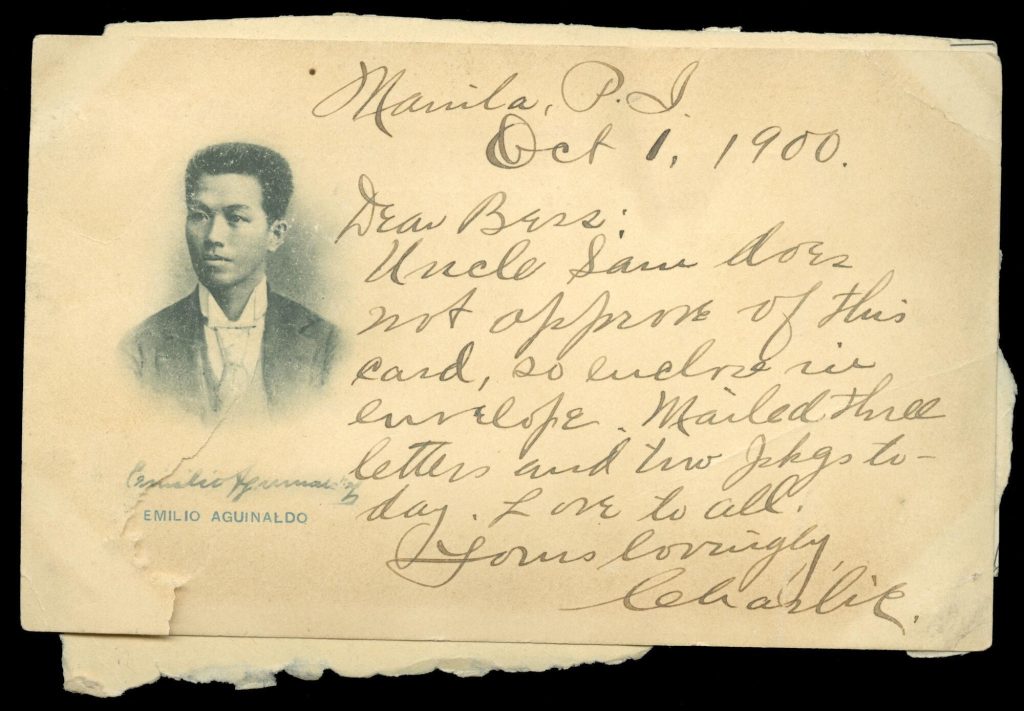 Manila, P. I.
Oct 1, 1900.
Dear Bess:
Uncle Sam does
not approve of this
card, so enclose in
envelope. Mailed three
letters and two pkgs to-
day. Love to all.
Yours lovingly,
Charlie.
Emilio Aguinaldo
EMILIO AGUINALDO